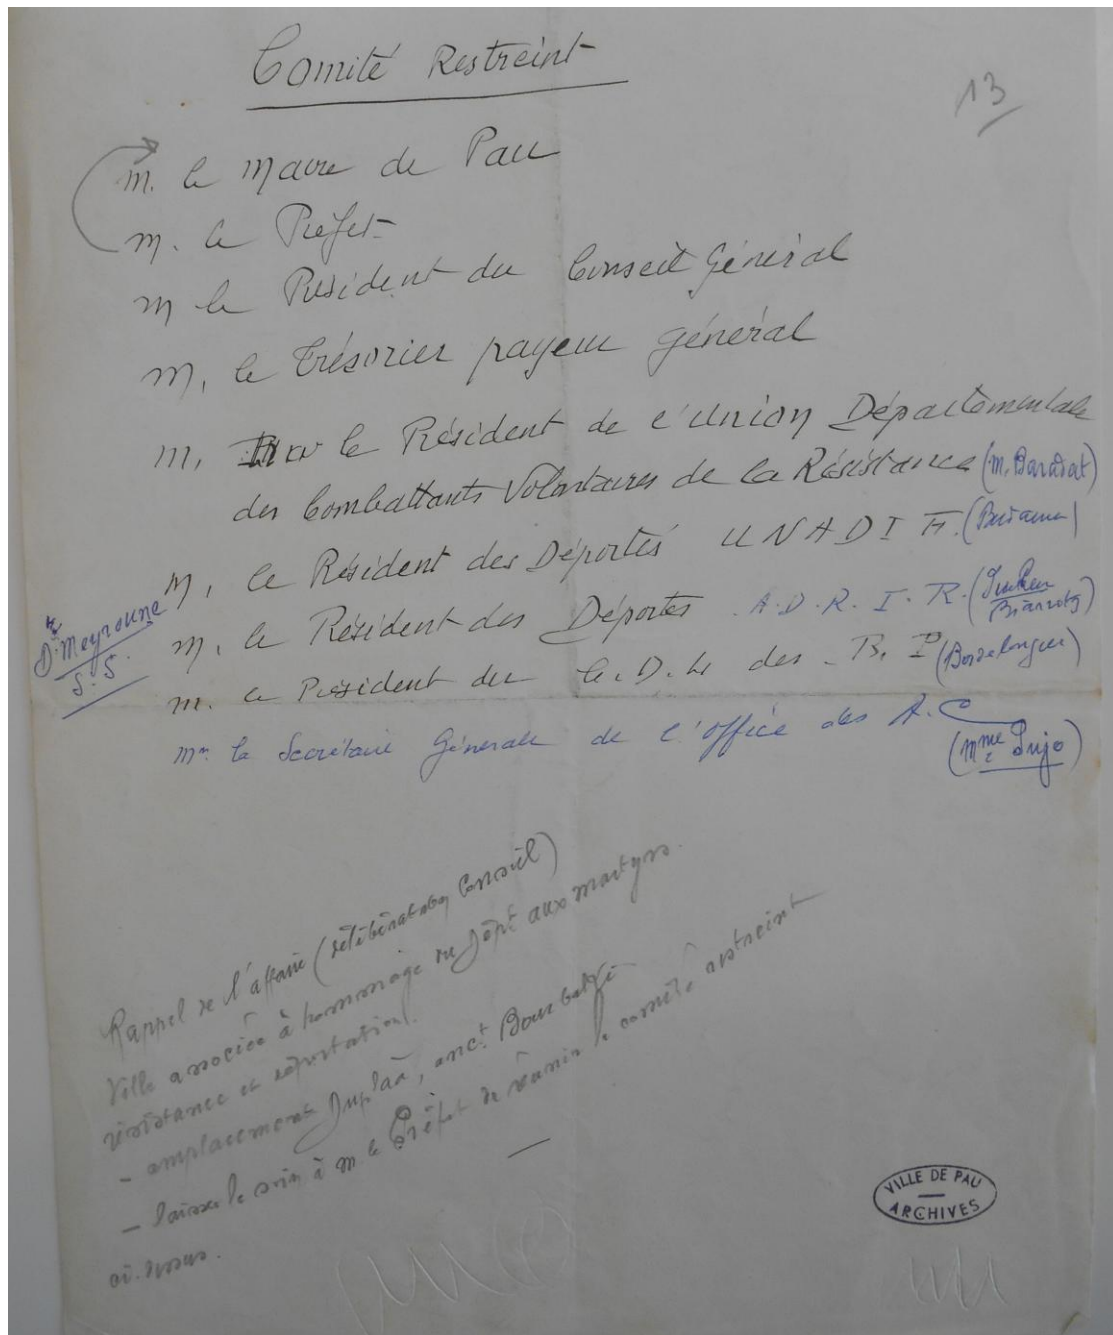 Comité Restreint
13
M. le Maire de Pau
M. le Préfet
M le Président du Conseil Général
M. le Trésorier payeur général
M. le Président de l'Union Départementale
des Combattants Volontaires de la Résistance (M. Baradat)
M. le Président des Déportés UNADIF.
M. le Président des Déportés A.D.R.I.R. (
Biarrotz)
Dr Meyroune
S.S.
M. le Président du C.D.L des B.P (Bordelongue)
Mm la Secrétaire Générale de l'office des A.C
(Mme Pujo)
Rappel de l'affaire (délibération Conseil)
Ville associée à hommage du Dépt aux martyrs
résistance et déportation.
- emplacement Duplaà, anct. Bourbaki
- laisser le soin à M. le Préfet de réunir le comité restreint
ci-dessus.
VILLE DE PAU
ARCHIVES